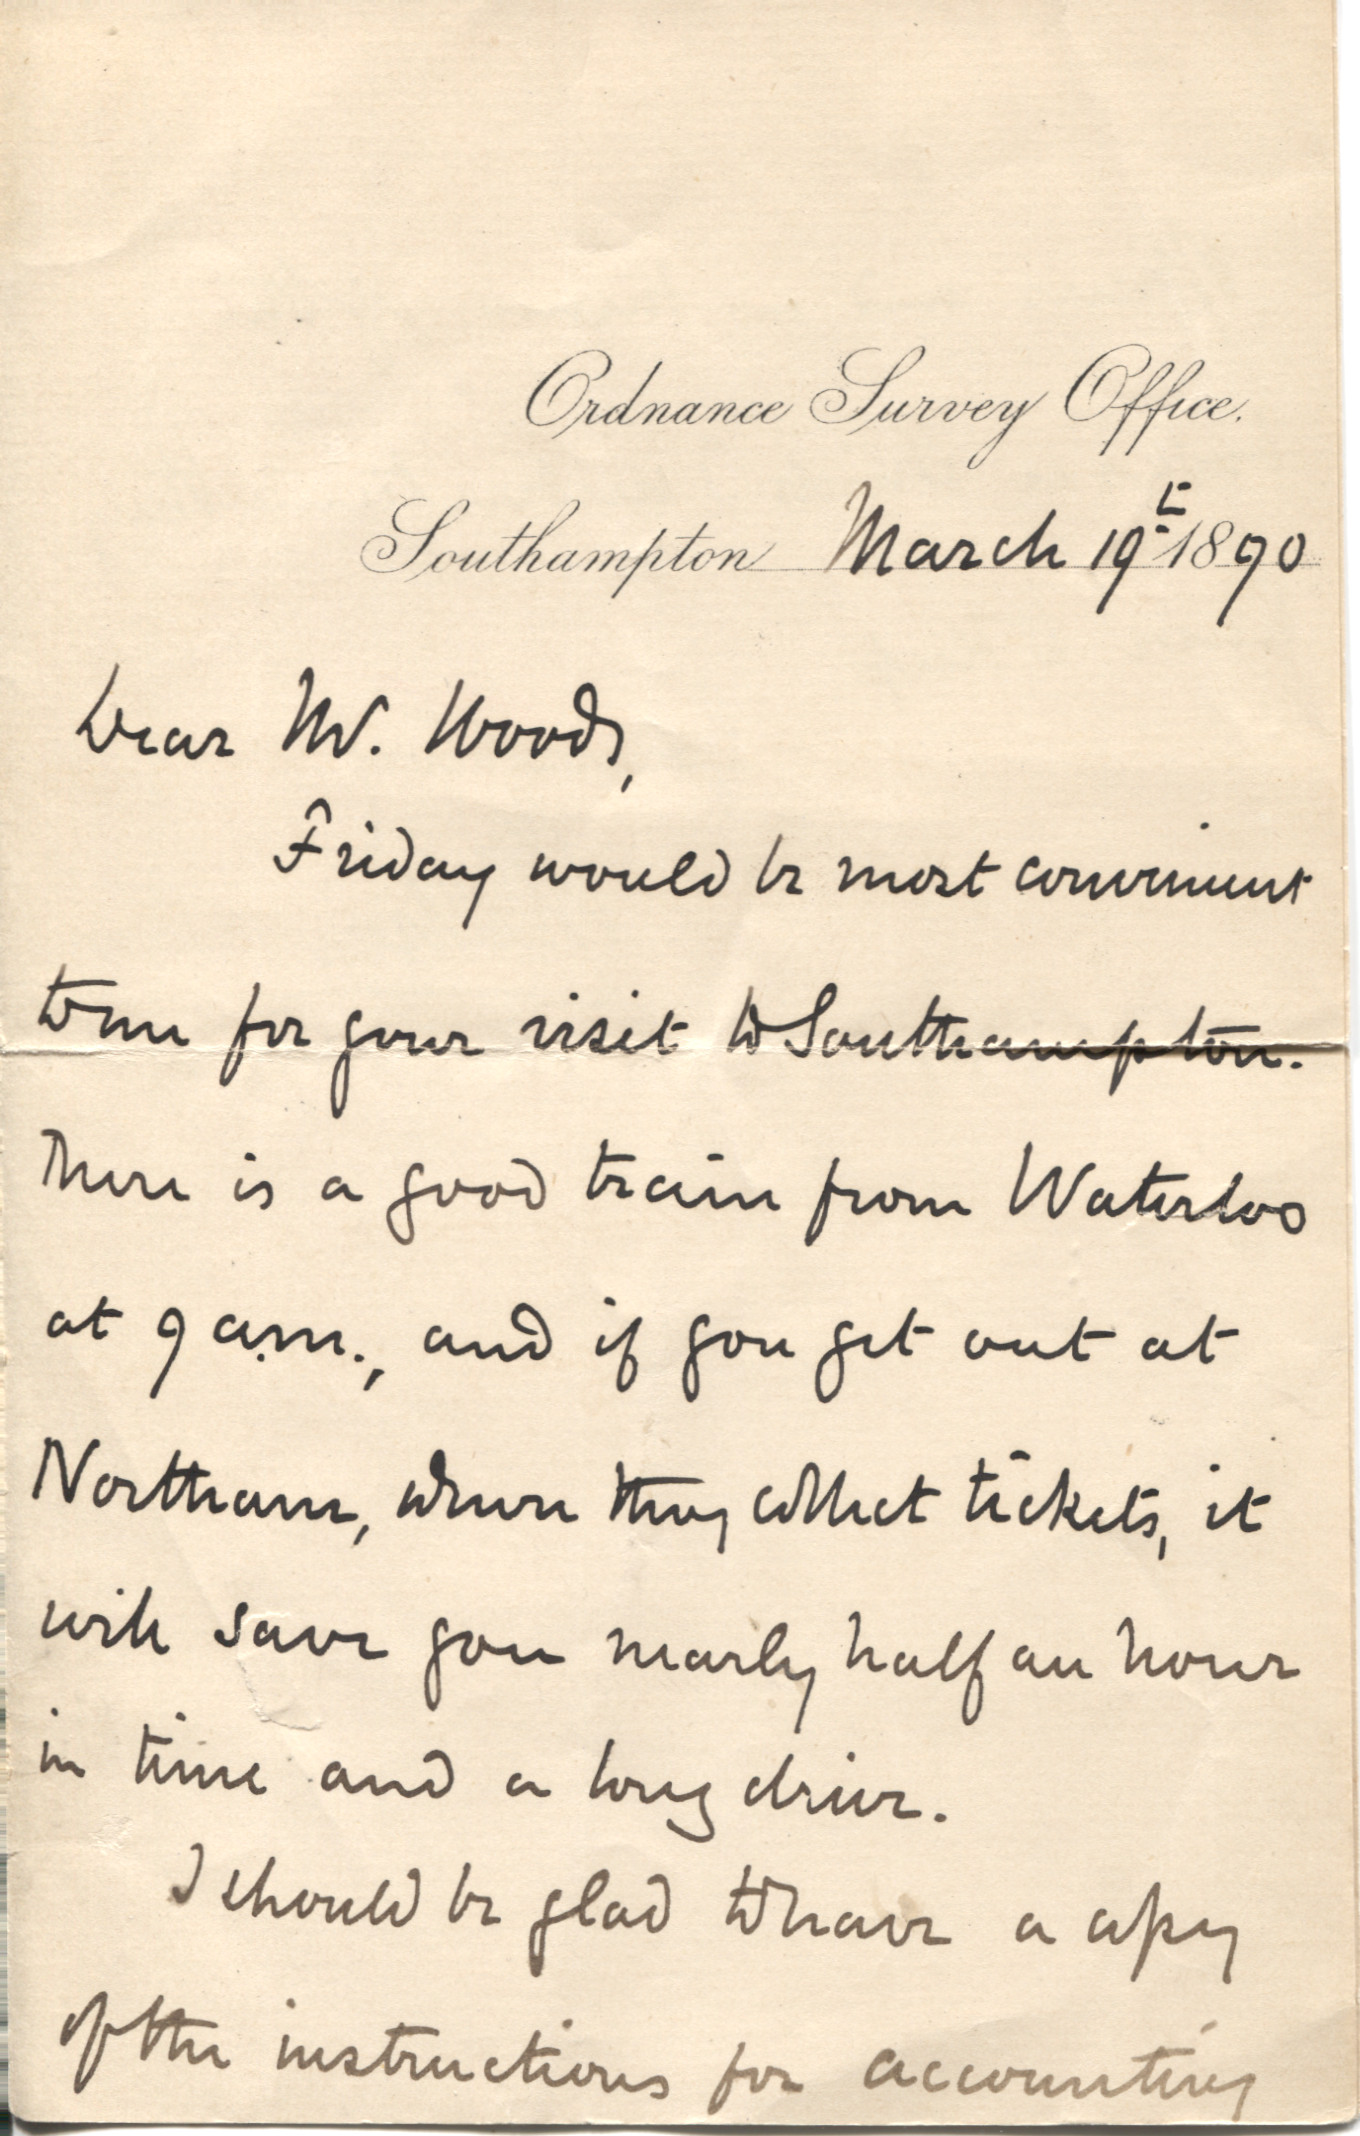 Ordnance Survey Office.
Southampton March 19t 1890
Dear Mr. Woods,
Friday would be most convenient
to me for your visit to Southampton.
There is a good train from Waterloo
at 9 a.m., and if you get out at
Northam, where they collect tickets, it
will save you nearly half an hour
in time and a long drive.
I should be glad to have a copy
of the instructions for accounting